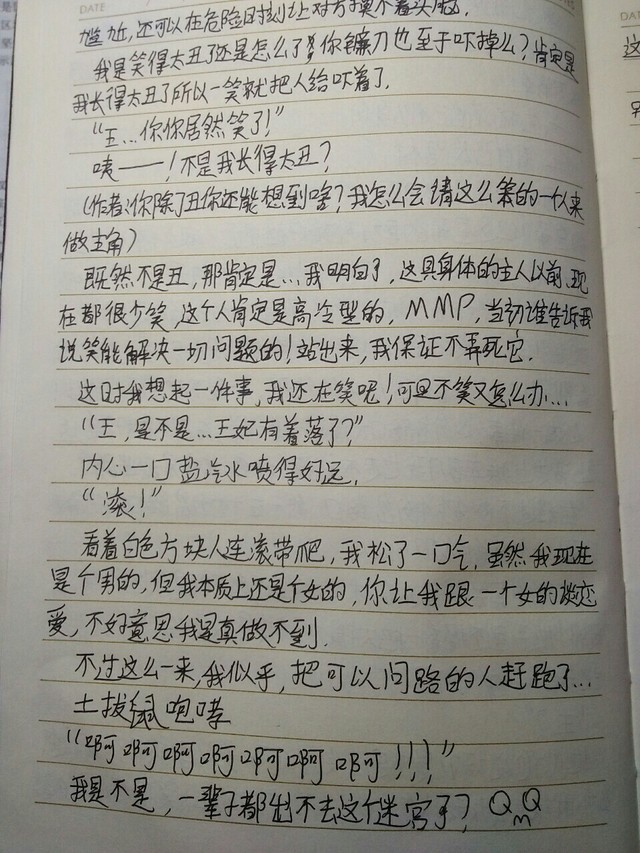 DATE
尴尬,还可以在危险时刻让对方摸不着头脑.
我是笑得太丑了还是怎么了,你镰刀也至于吓掉么?肯定是
我长得太丑了所以一笑就把人给吓着了.
“王...你你居然笑了!”
咦——!不是我长得太丑?
(作者:你除了丑你还能想到啥?我怎么会请这么笨的一个从来
做主角)
既然不是丑,那肯定是...我明白了,这具身体的主人以前.现
在都很少笑,这个人肯定是高冷型的,MMP,当初谁告诉我
说笑能解决一切问题的!站出来,我保证不弄死它.
这时我想起一件事,我还在笑呢!可是不笑又怎么办...
“王,是不是...王妃有着落了?”
内心一口盐汽水喷得好远.
“滚!”
看着白色方块人连滚带爬,我松了一口气,虽然我现在
是个男的,但我本质上还是个女的,你让我跟一个女的谈恋
爱,不好意思我是真做不到.
不过这么一来,我似乎,把可以问路的人赶跑了...
土拨鼠咆哮
“啊啊啊啊啊啊啊!!!”
我是不是,一辈子都出不去这个迷宫了?QmQ